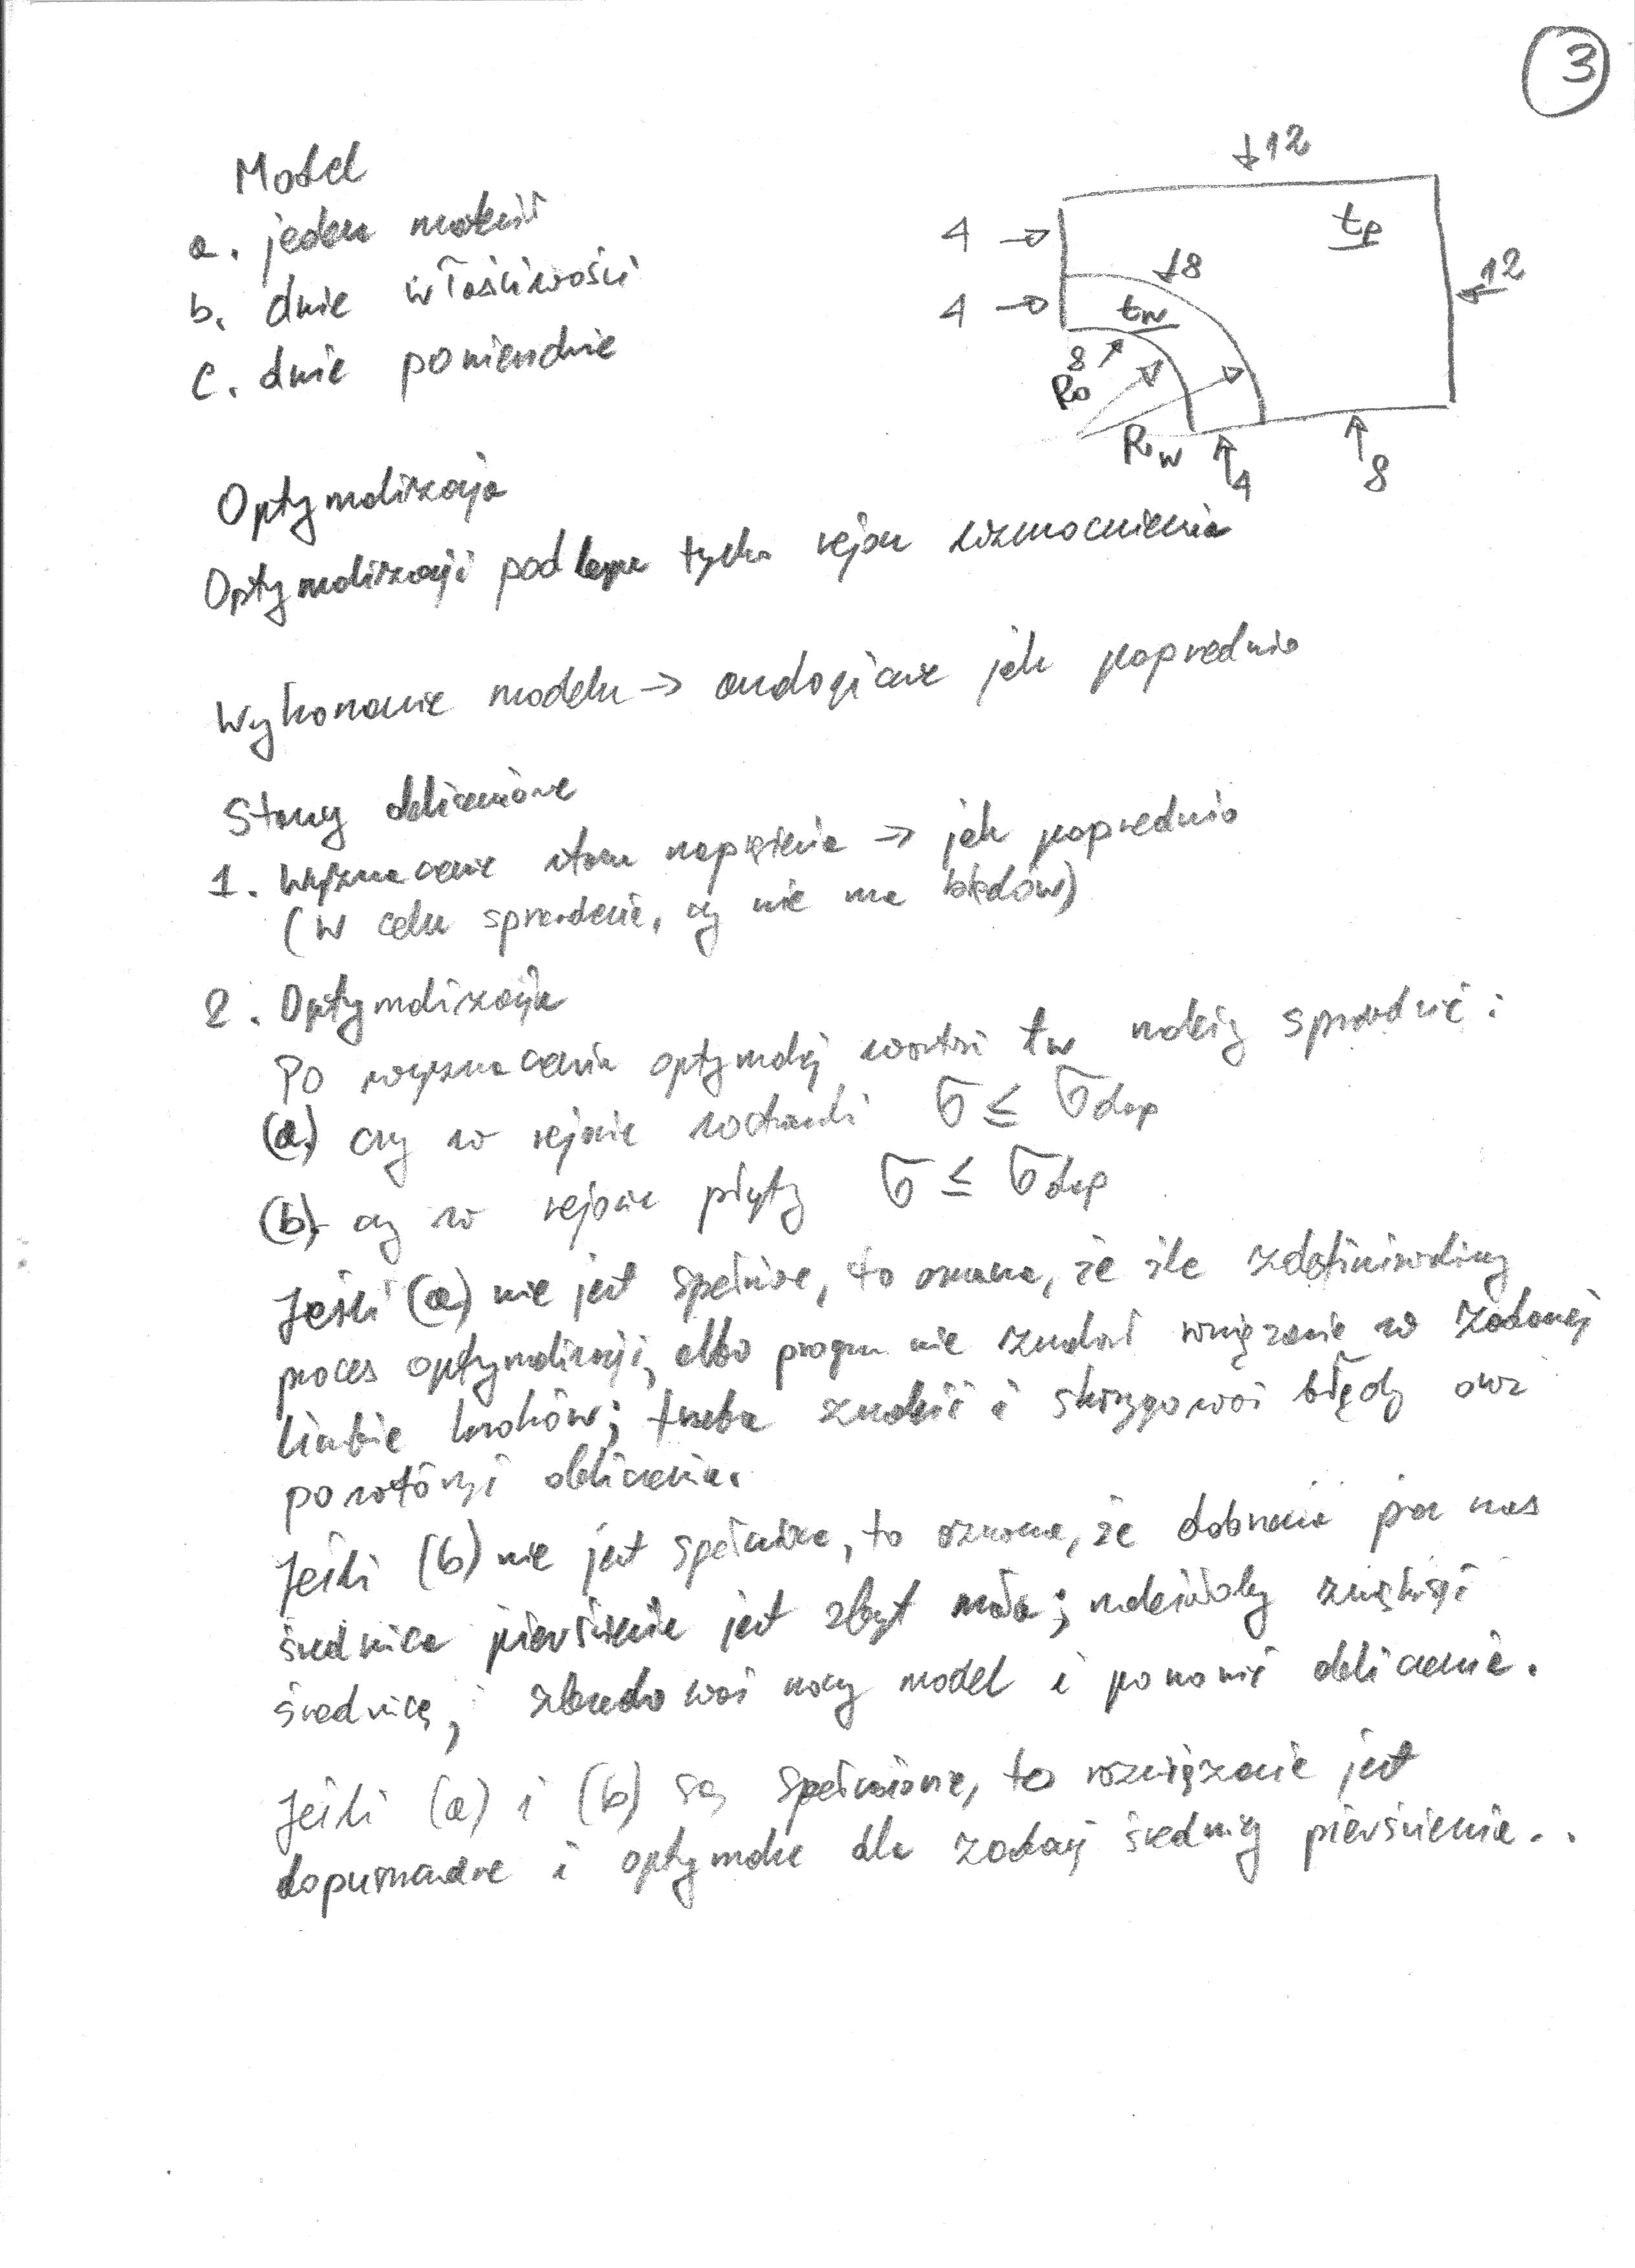 3
Model
a. jeden materiał
b. dwie właściwości
c. dwie powierzchnie
↓12
4 →
tp
↓8
12 ←
4 →
tw
8
Ro
Rw
↑4
↑8
Optymalizacja
Optymalizacji podlega tylko rejon wzmocnienia
Wykonanie modelu → analogicznie jak poprzednio
Stany obliczeniowe
1. Wyznaczenie stanu naprężenia → jak poprzednio
(w celu sprawdzenia, czy nie ma błędów)
2. Optymalizacja
Po wyznaczeniu optymalnej wartości tw należy sprawdzić:
(a) czy w rejonie σ ≤ σdop
(b) czy w rejonie płyty σ ≤ σdop
Jeśli (a) nie jest spełnione, to oznacza, że źle zdefiniowaliśmy
proces optymalizacji, albo program nie znalazł rozwiązania w zadanej
liczbie kroków; trzeba znaleźć i skorygować błędy oraz
powtórzyć obliczenia.
Jeśli (b) nie jest spełnione, to oznacza, że dobrana przez nas
średnica pierścienia jest zbyt mała; należałoby zwiększyć
średnicę, zbudować nowy model i ponowić obliczenia.
Jeśli (a) i (b) są spełnione, to rozwiązanie jest
dopuszczalne i optymalne dla zadanej średnicy pierścienia..